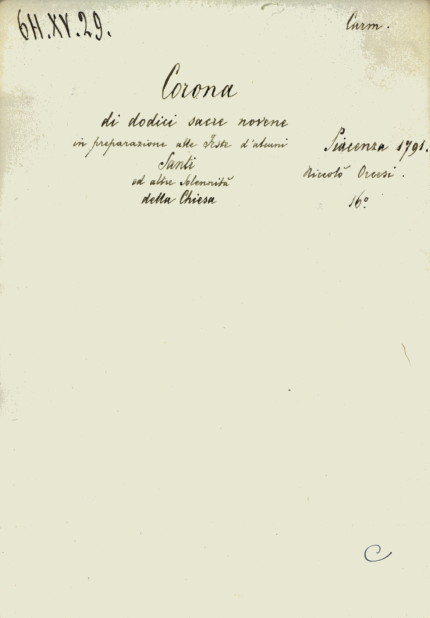 6H.XV.29.
Carm.
Corona
di dodici sacre novene
in preparazione alle Feste d'alcuni
Santi
ed altre Solennità
della Chiesa
Piacenza 1791.
Niccolò Orcesi.
16º
C